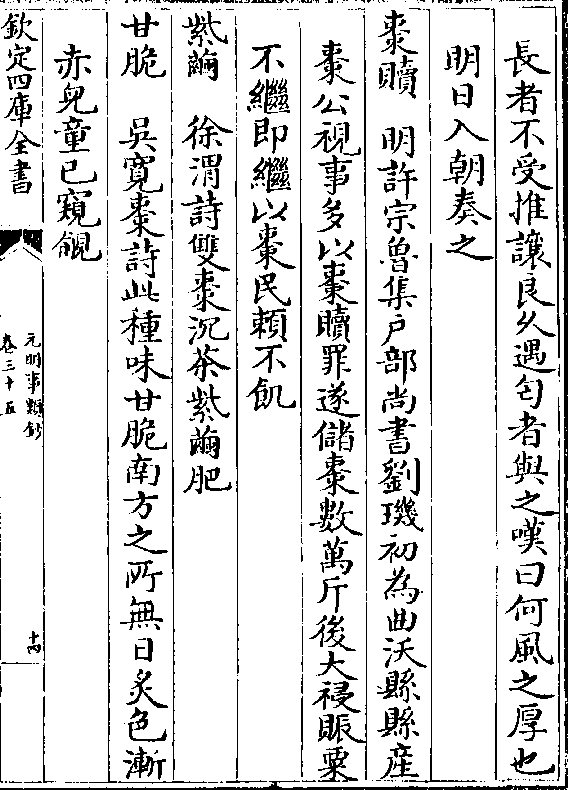 長者不受推讓良久遇匄者與之嘆曰何風之厚也
明日入朝奏之
棗贖　明許宗魯集户部尚書劉璣初為曲沃縣縣産
棗公視事多以棗贖罪遂儲棗數萬斤後大祲賑粟
不繼即繼以棗民賴不飢
紫繭　徐渭詩雙棗沉茶紫繭肥
甘脆　吳寬棗詩此種味甘脆南方之所無日炙色漸
赤兒童已窺覦
欽定四庫全書
元明事類鈔
卷三十五
十四